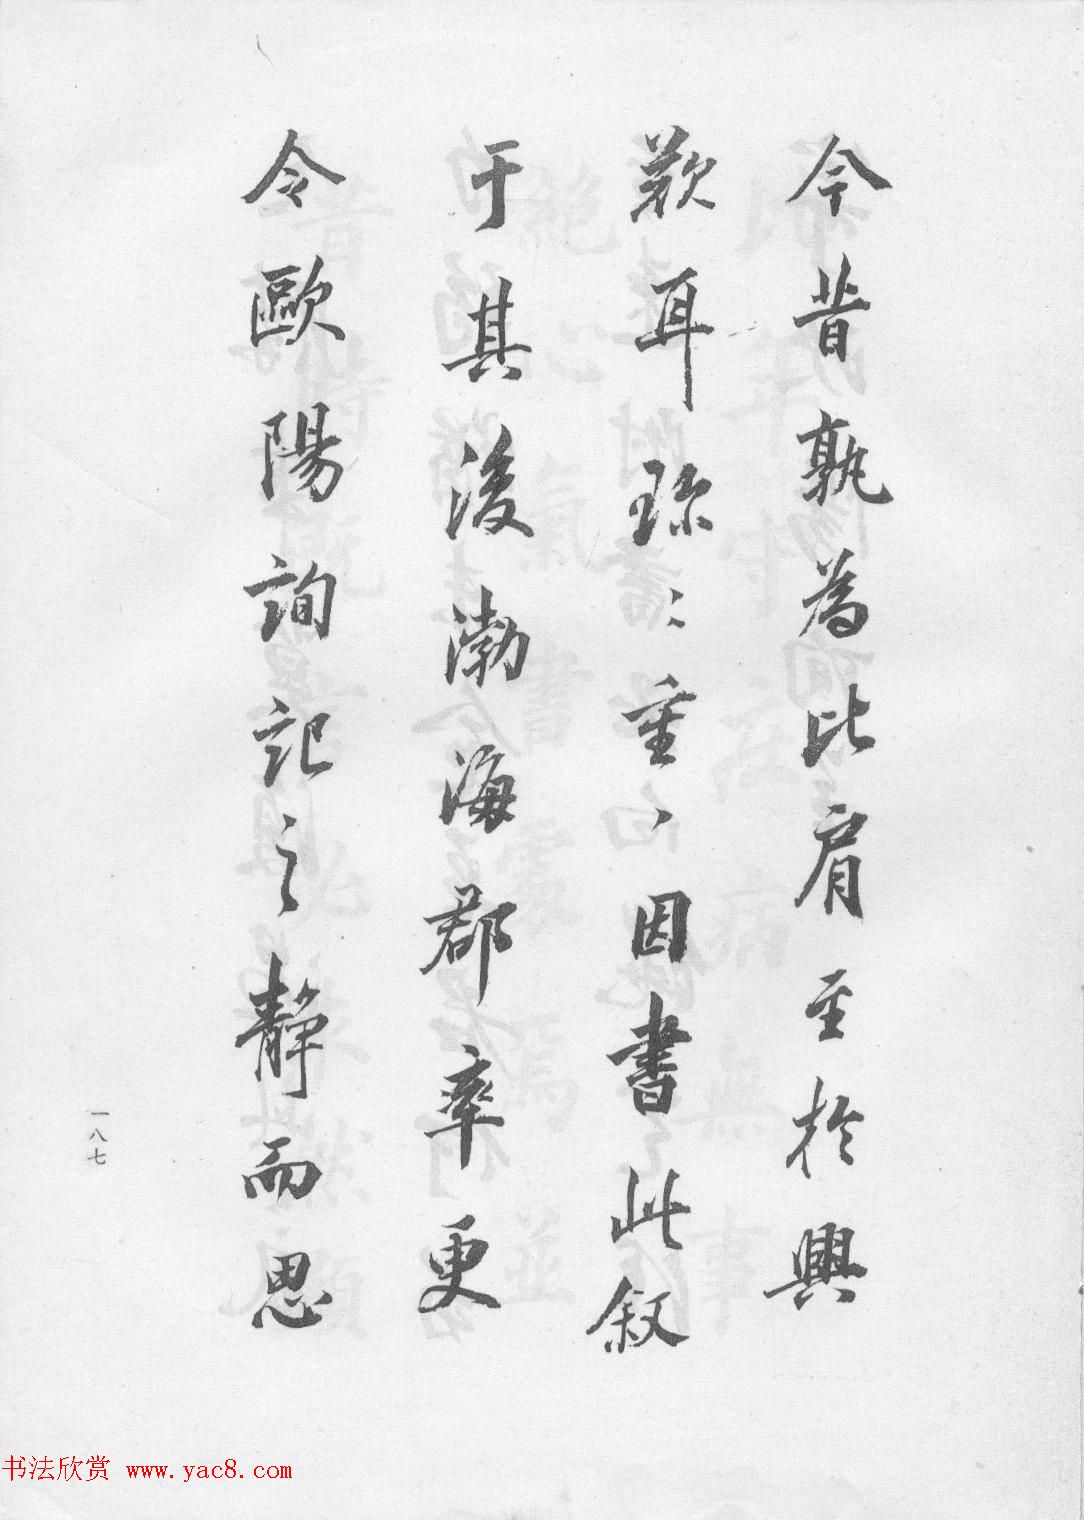 今昔孰為比肩至於興
歎耳珎〻重〻因書此叙
于其後渤海郡率更
令歐陽詢記之靜而思
一八七
书法欣赏 www.yac8.com